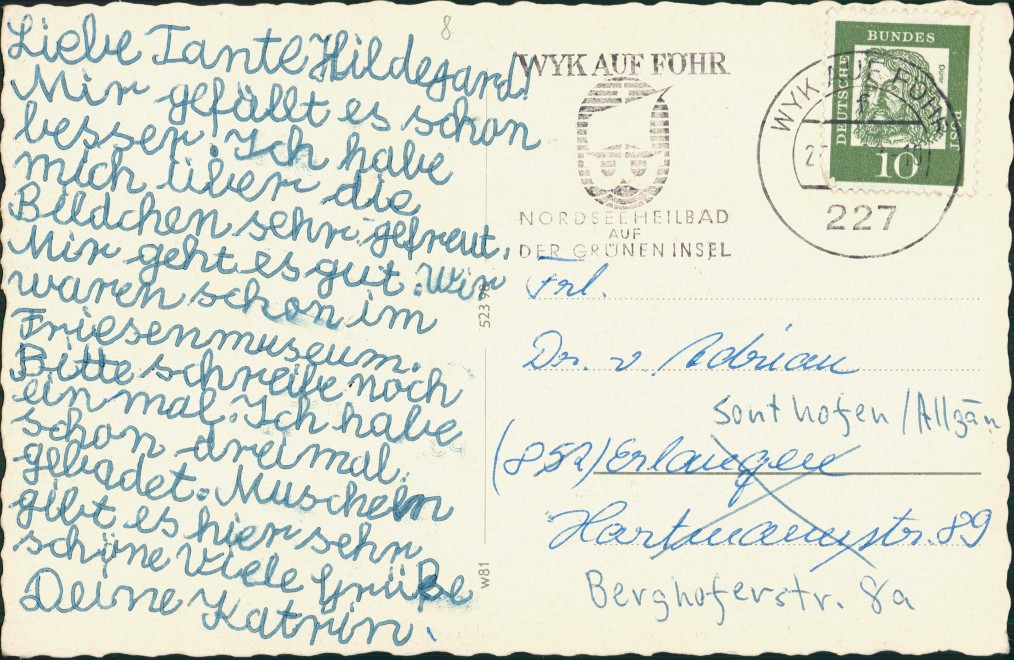 8
Liebe Tante Hildegard!
Mir gefällt es schon
besser. Ich habe
mich über die
Bildchen sehr gefreut.
Mir geht es gut. Wir
waren schon im
Friesenmuseum.
Bitte schreibe noch
einmal. Ich habe
schon dreimal
gebadet. Muscheln
gibt es hier sehr
schöne Viele Grüße
Deine Katrin.
WYK AUF FÖHR
NORDSEEHEILBAD
AUF
DER GRÜNEN INSEL
WYK AUF FÖHR
227
DEUTSCHE
BUNDES
POST
Dürer
10
523 98
W81
Frl.
Dr. v Adrian
Sonthofen/Allgäu
(852) Erlangen
Hartmannstr. 89
Berghoferstr. 8a